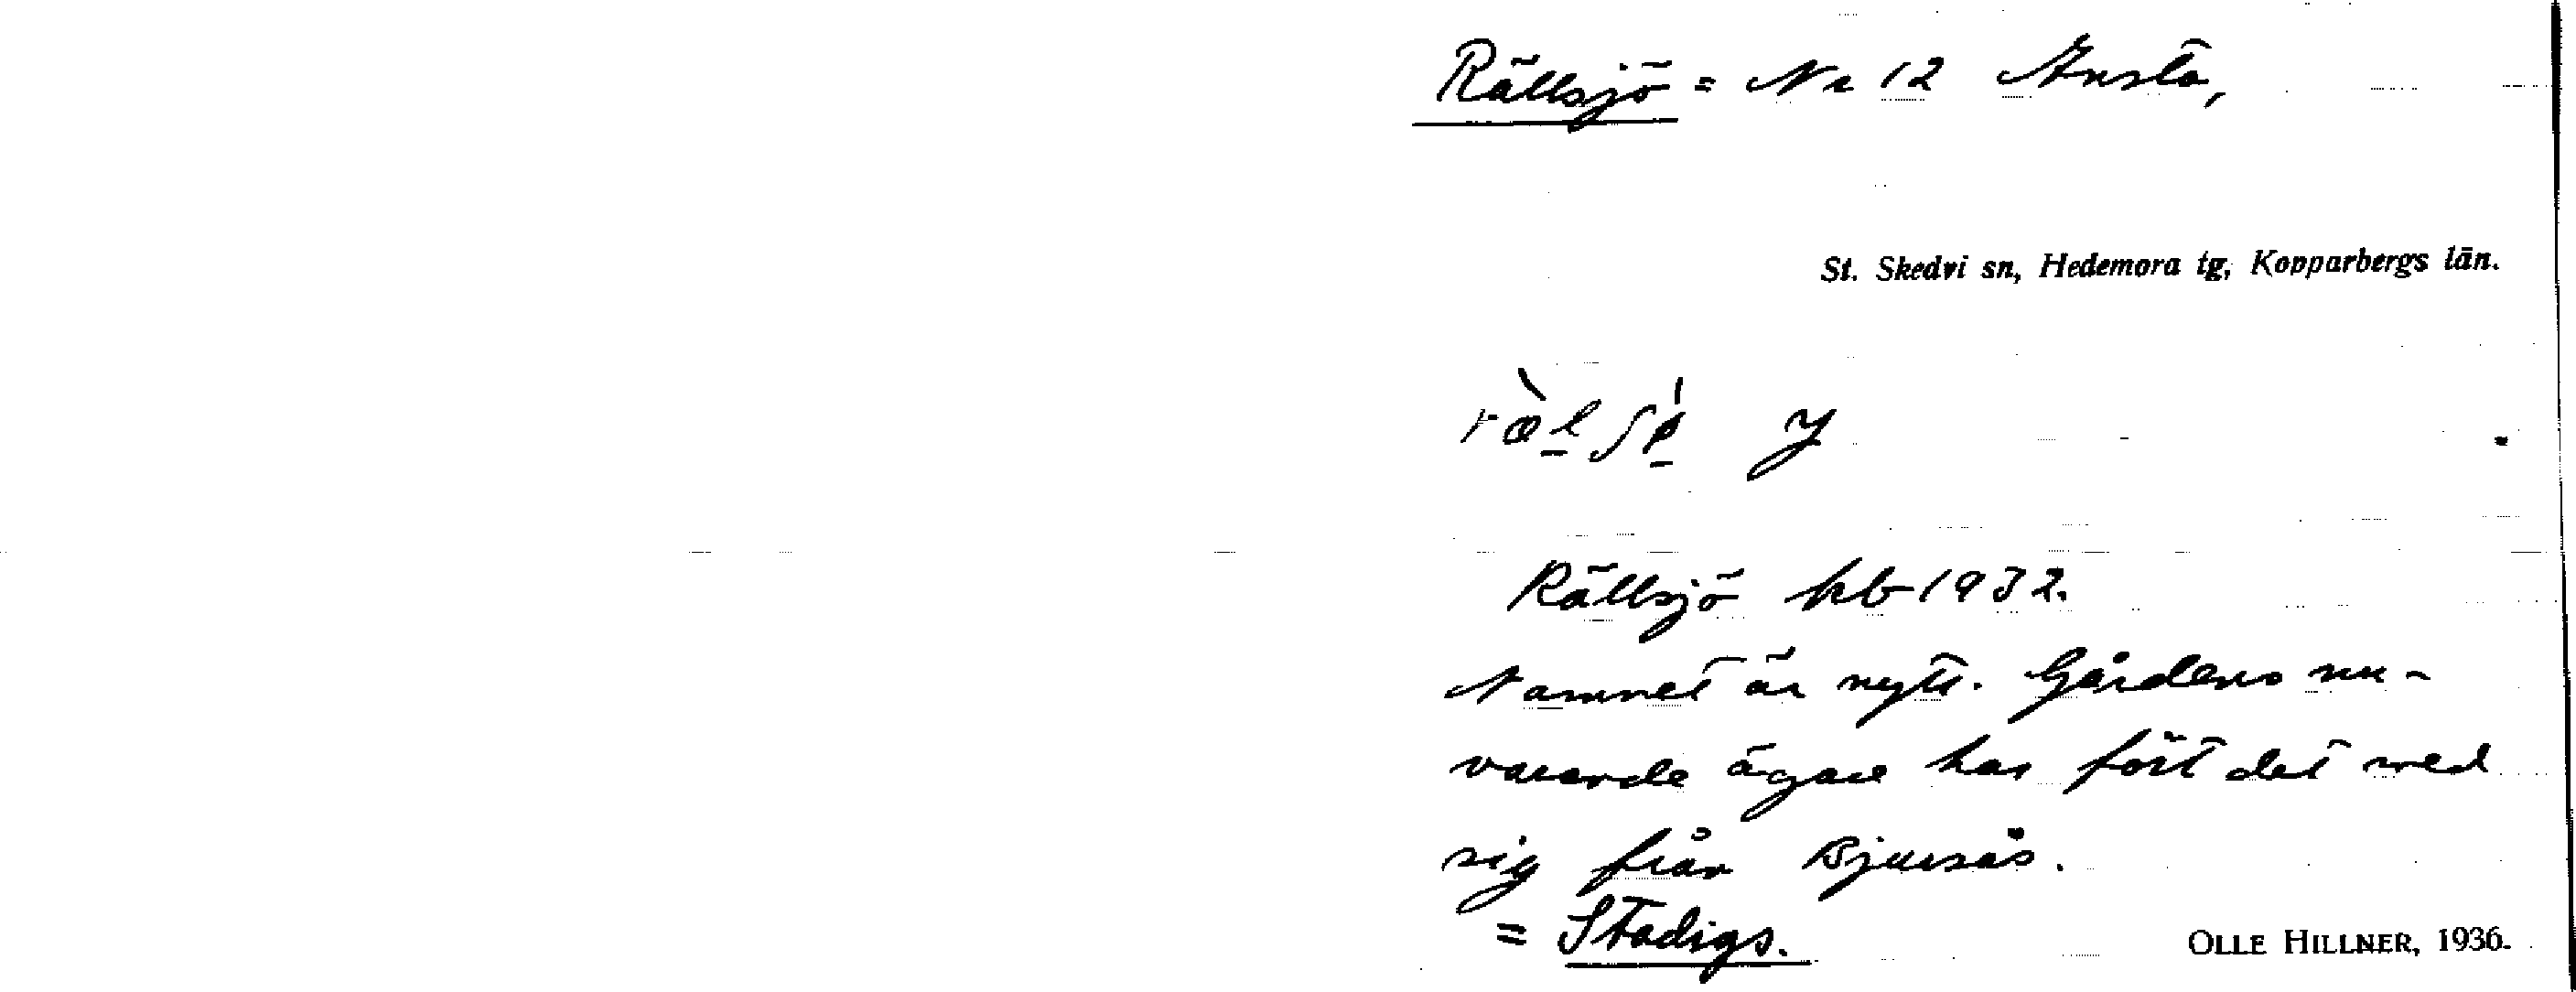 Rällsjö = Nr 12 Ansta,
St. Skedvi sn, Hedemora tg, Kopparbergs län.
ræ̀l ʃø̍ y
Rällsjö kb 1932.
Namnet är nytt. Gårdens nu-
varande ägare har fört det med
sig från Bjursås.
= Stadigs.
OLLE HILLNER, 1936.